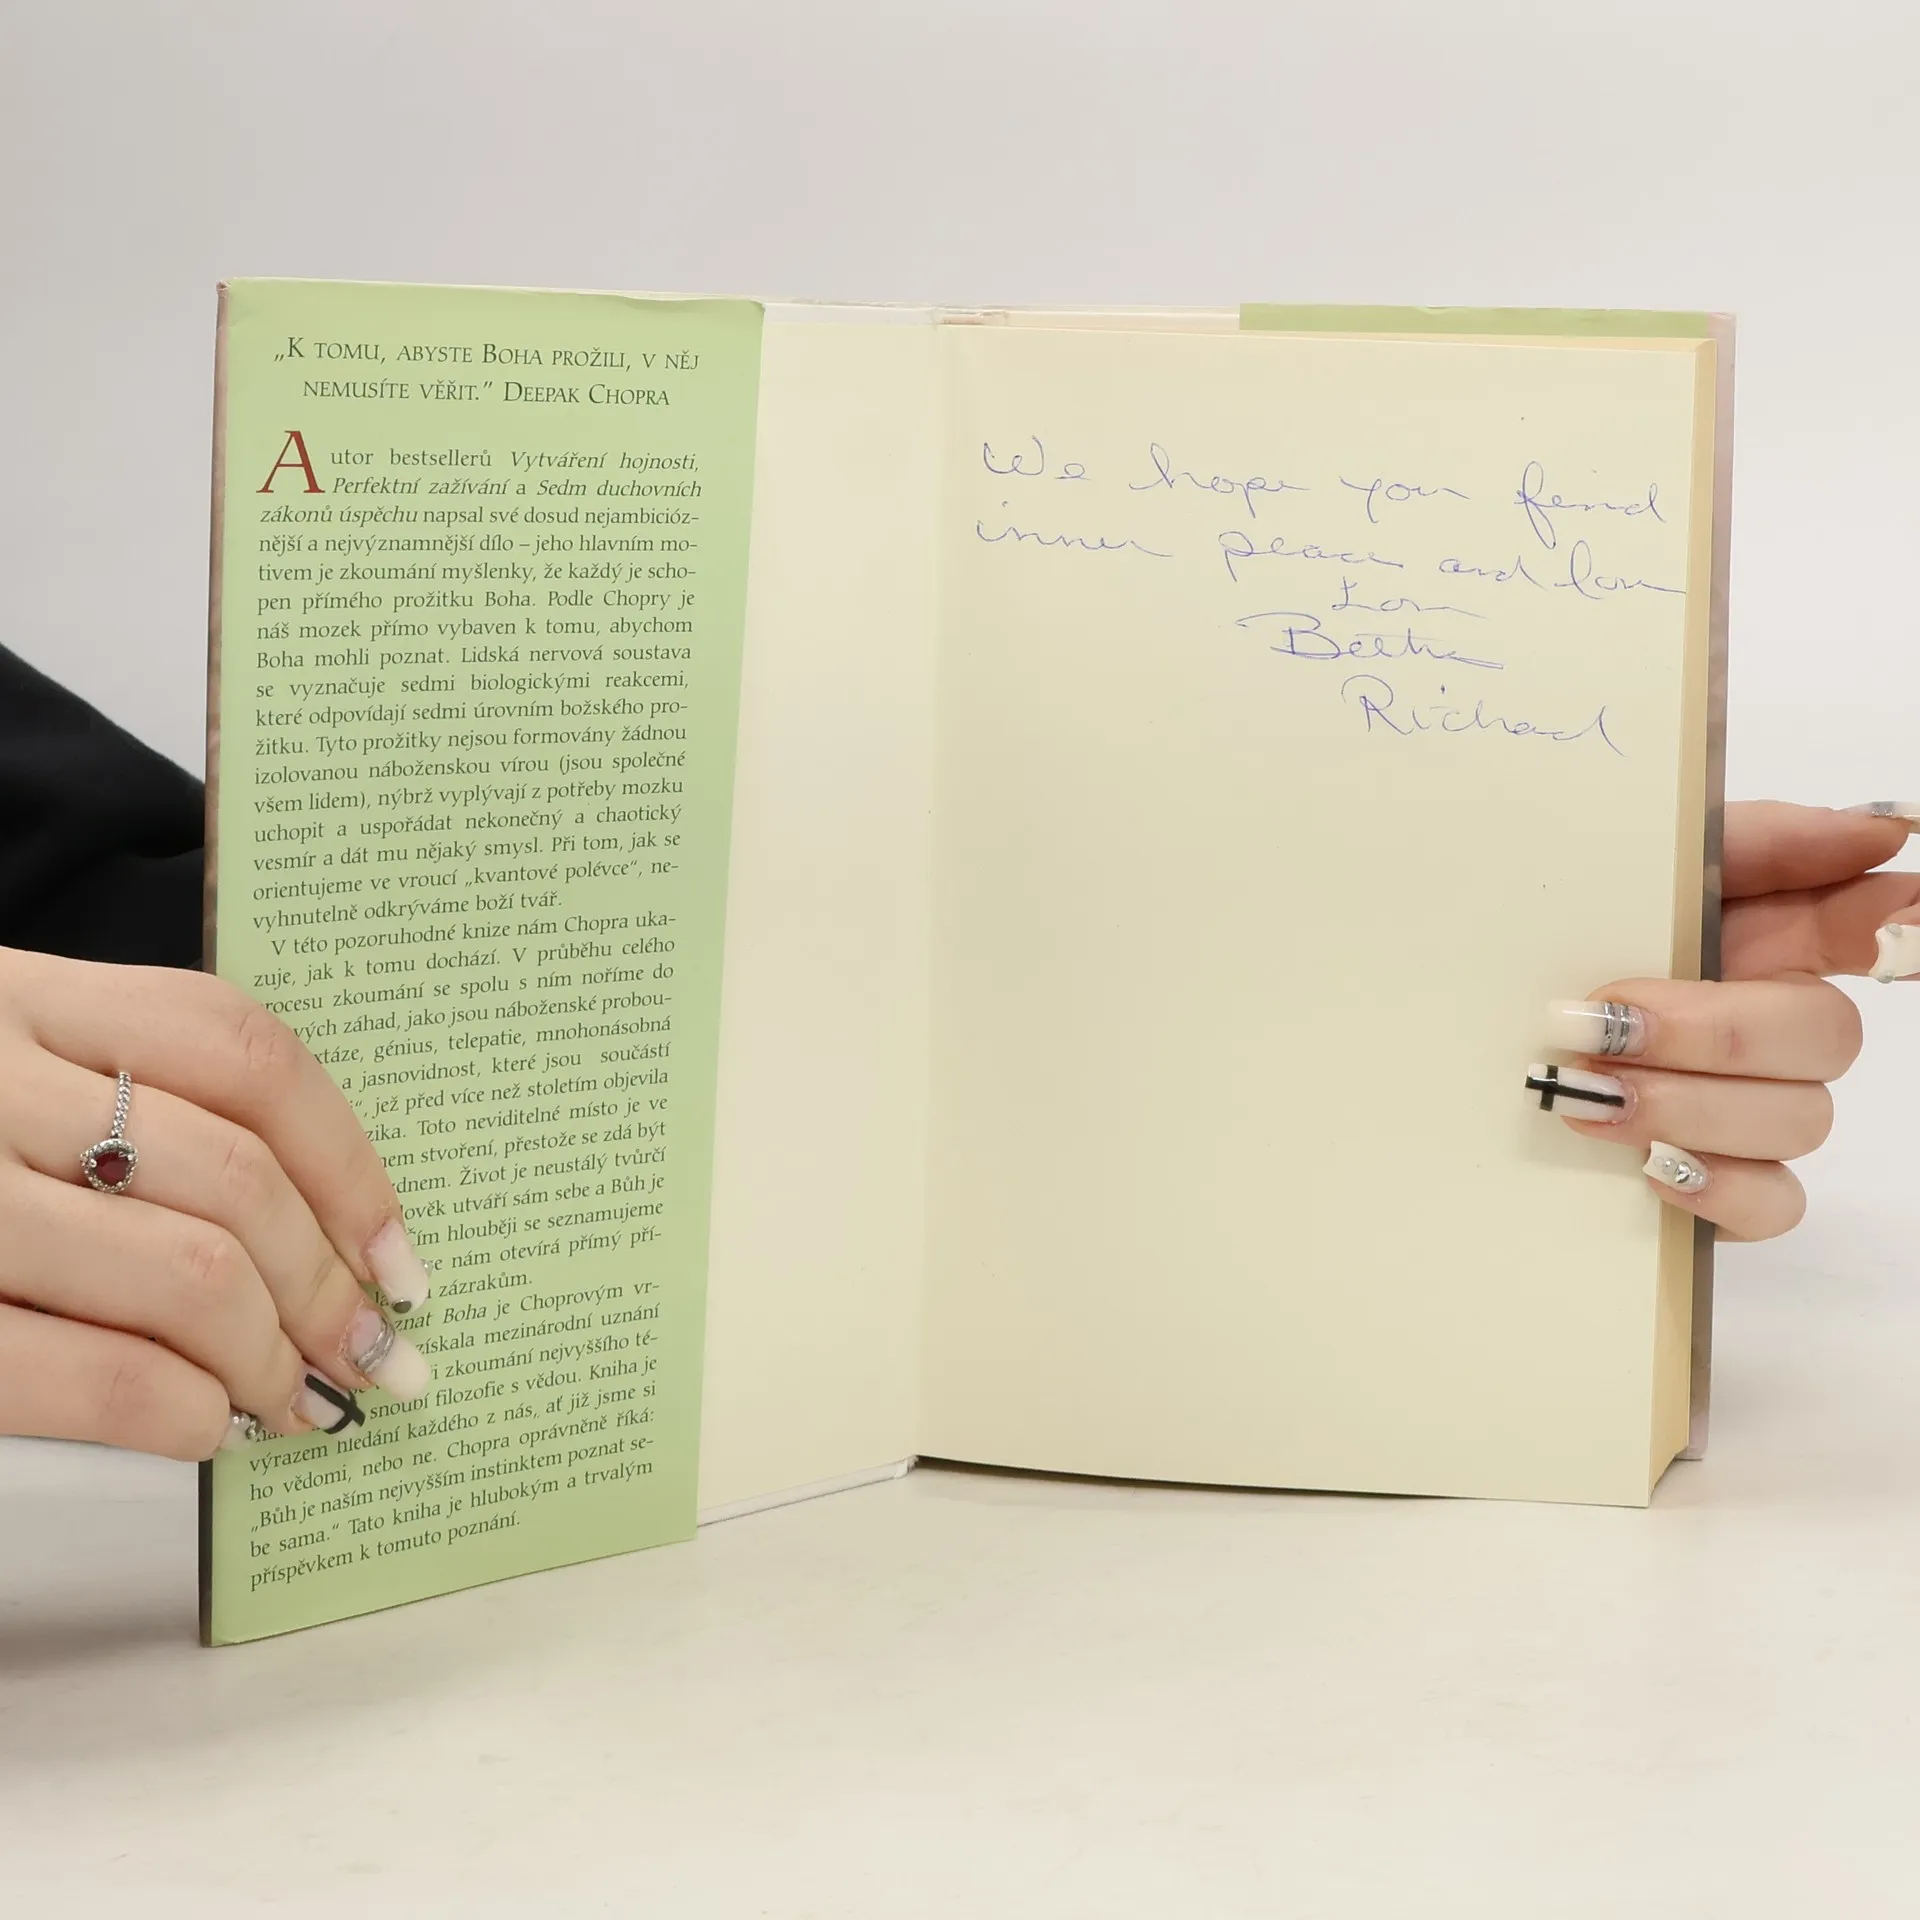 „K TOMU, ABYSTE BOHA PROŽILI, V NĚJ
NEMUSÍTE VĚŘIT.” DEEPAK CHOPRA
Autor bestsellerů Vytváření hojnosti,
Perfektní zažívání a Sedm duchovních
zákonů úspěchu napsal své dosud nejambicióz-
nější a nejvýznamnější dílo – jeho hlavním mo-
tivem je zkoumání myšlenky, že každý je scho-
pen přímého prožitku Boha. Podle Chopry je
náš mozek přímo vybaven k tomu, abychom
Boha mohli poznat. Lidská nervová soustava
se vyznačuje sedmi biologickými reakcemi,
které odpovídají sedmi úrovním božského pro-
žitku. Tyto prožitky nejsou formovány žádnou
izolovanou náboženskou vírou (jsou společné
všem lidem), nýbrž vyplývají z potřeby mozku
uchopit a uspořádat nekonečný a chaotický
vesmír a dát mu nějaký smysl. Při tom, jak se
orientujeme ve vroucí „kvantové polévce“, ne-
vyhnutelně odkrýváme boží tvář.
V této pozoruhodné knize nám Chopra uka-
zuje, jak k tomu dochází. V průběhu celého
rocesu zkoumání se spolu s ním noříme do
vých záhad, jako jsou náboženské probou-
xtáze, génius, telepatie, mnohonásobná
a jasnovidnost, které jsou součástí
“, jež před více než stoletím objevila
zika. Toto neviditelné místo je ve
nem stvoření, přestože se zdá být
dnem. Život je neustálý tvůrčí
lověk utváří sám sebe a Bůh je
čím hlouběji se seznamujeme
nám otevírá přímý pří-
zázrakům.
znat Boha je Choprovým vr-
získala mezinárodní uznání
i zkoumání nejvyššího té-
snoubí filozofie s vědou. Kniha je
výrazem hledání každého z nás, ať již jsme si
ho vědomi, nebo ne. Chopra oprávněně říká:
„Bůh je naším nejvyšším instinktem poznat se-
be sama.“ Tato kniha je hlubokým a trvalým
příspěvkem k tomuto poznání.
We hope you find
inner peace and love
Love
Richard